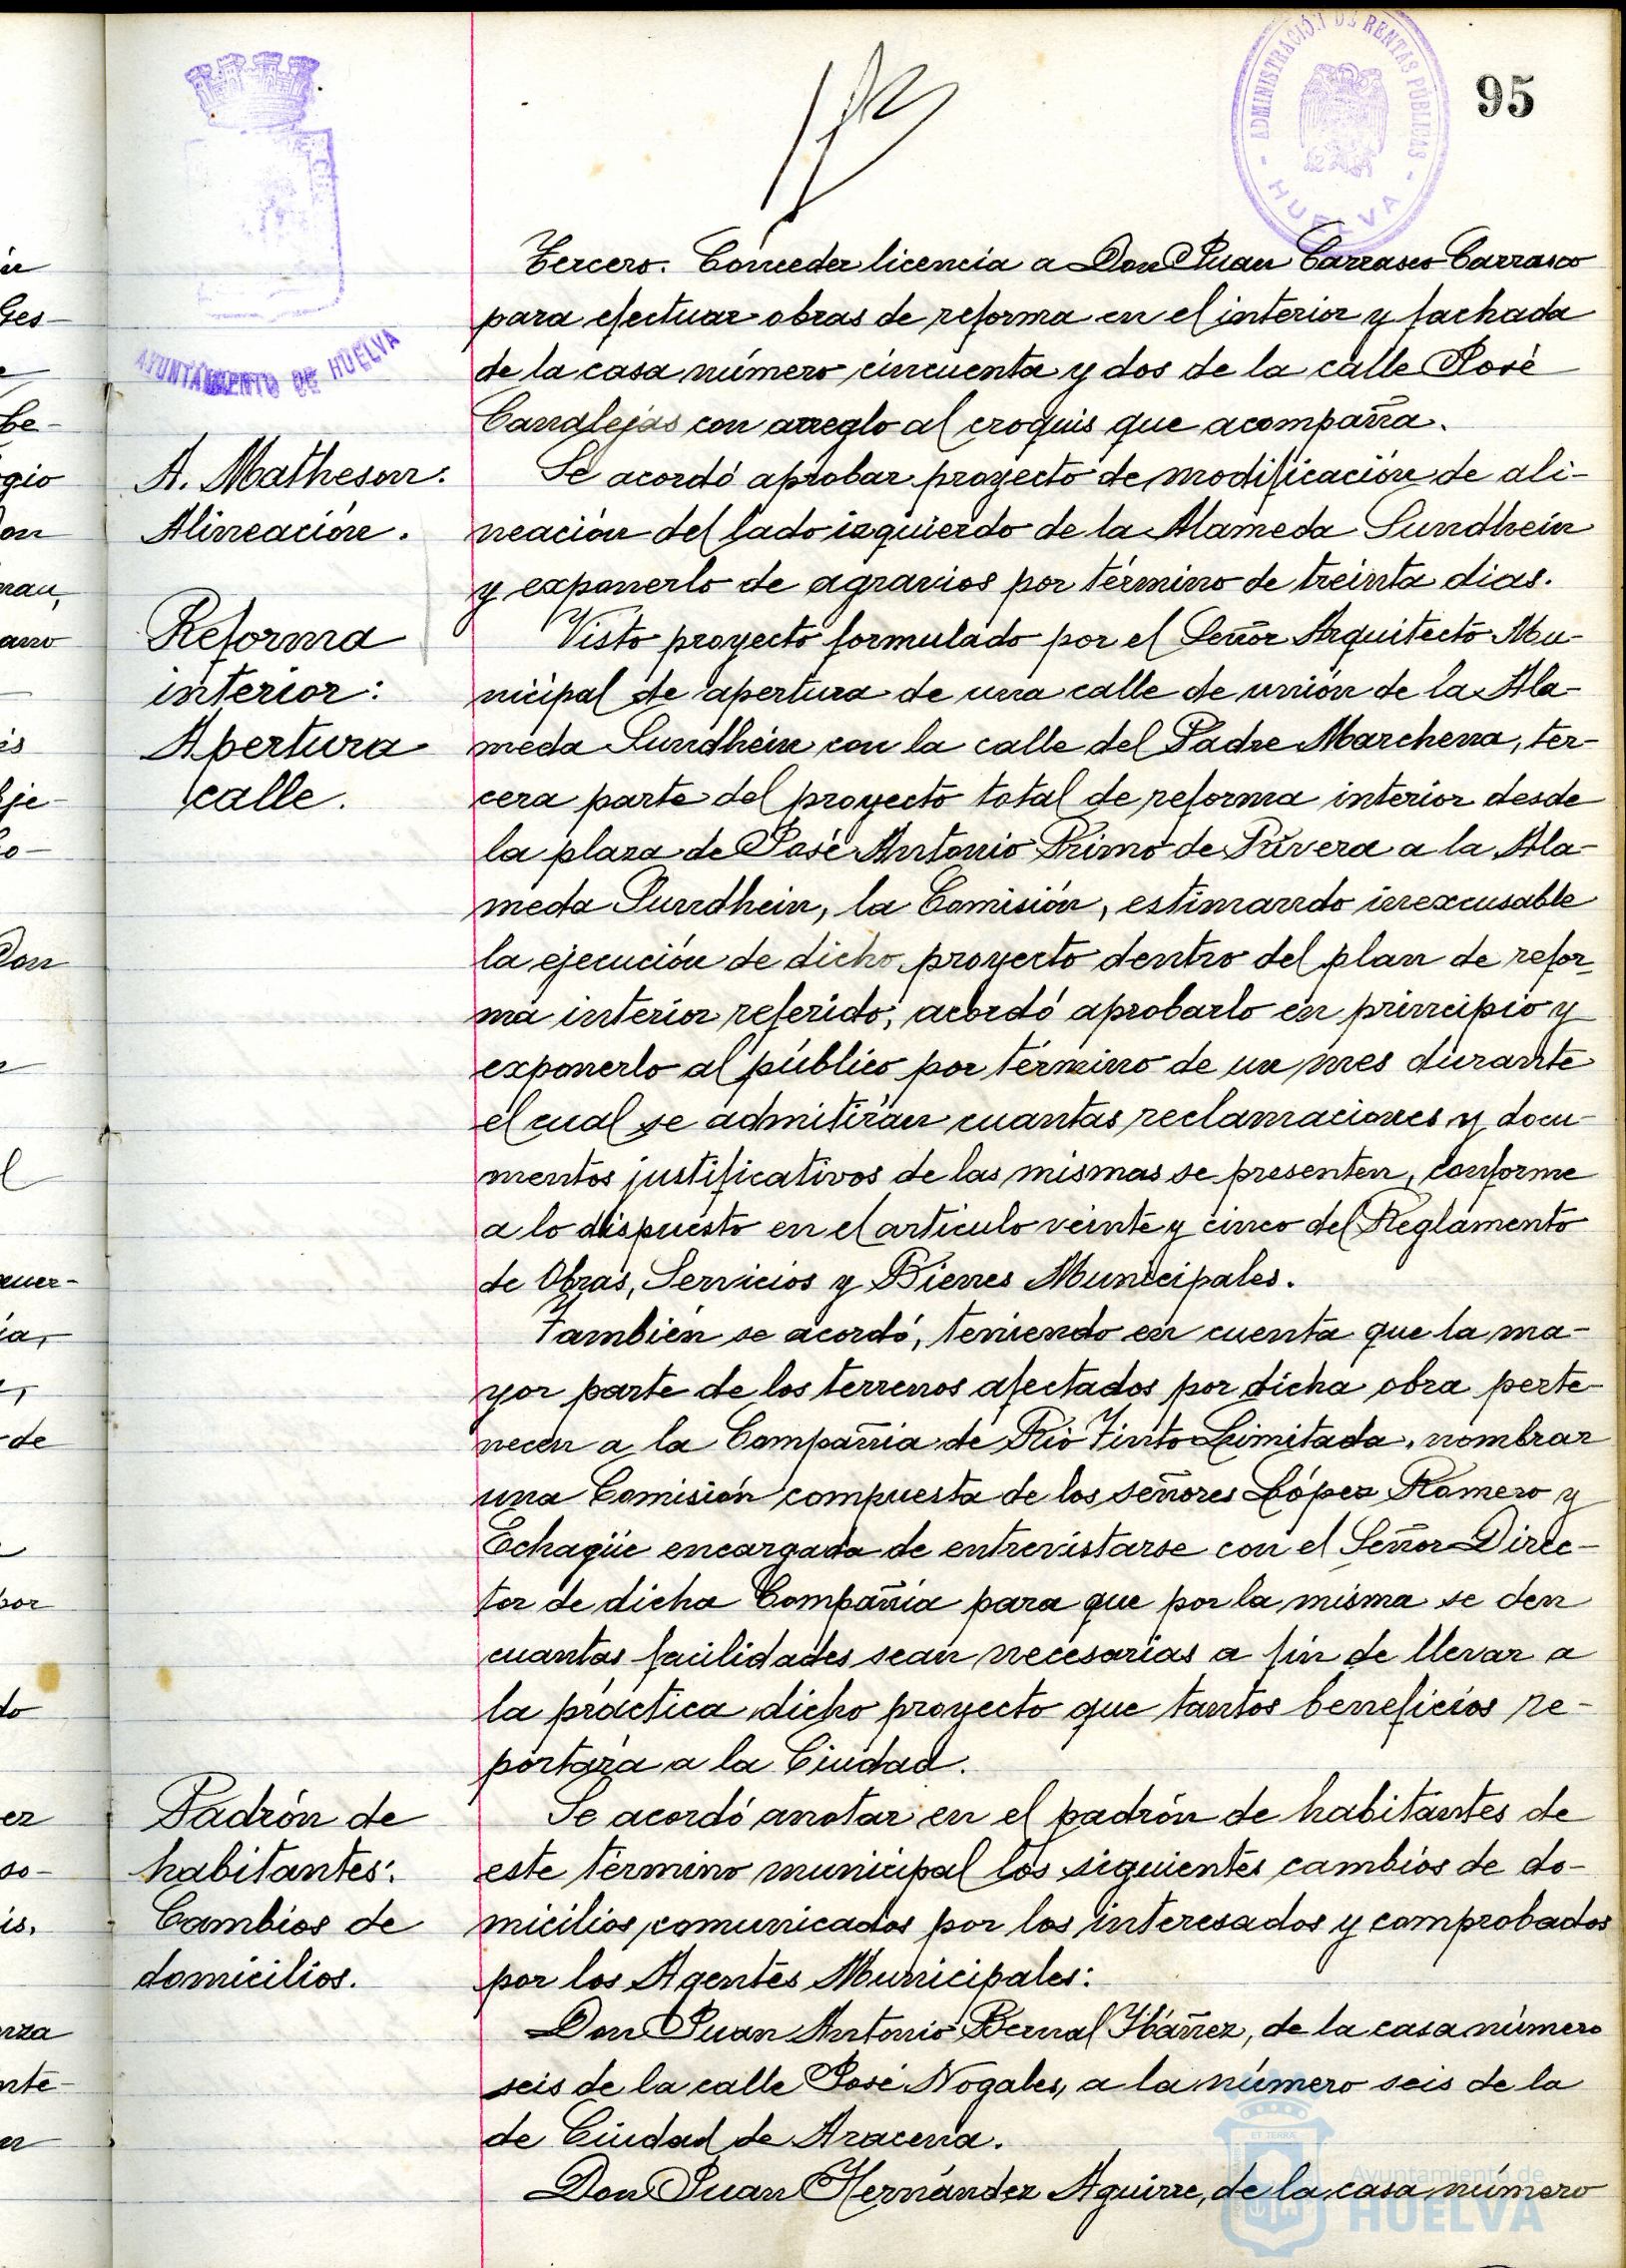 95
ADMINISTRACIÓN DE RENTAS PÚBLICAS
- HUELVA -
AYUNTAMIENTO DE HUELVA
Tercero. Conceder licencia a Don Juan Carrasco Carrasco
para efectuar obras de reforma en el interior y fachada
de la casa número cincuenta y dos de la calle José
Canalejas con arreglo al croquis que acompaña.
A. Matheson:
Alineación.
Se acordó aprobar proyecto de modificación de ali-
neación del lado izquierdo de la Alameda Sundhein
y exponerlo de agravios por término de treinta dias.
Reforma
interior:
Apertura
calle.
Visto proyecto formulado por el Señor Arquitecto Mu-
nicipal de apertura de una calle de unión de la Ala-
meda Sundhein con la calle del Padre Marchena, ter-
cera parte del proyecto total de reforma interior desde
la plaza de José Antonio Primo de Rivera a la Ala-
meda Sundhein, la Comisión, estimando inexcusable
la ejecución de dicho proyecto dentro del plan de refor-
ma interior referido, acordó aprobarlo en principio y
exponerlo al público por término de un mes durante
el cual se admitirán cuantas reclamaciones y docu-
mentos justificativos de las mismas se presenten, conforme
a lo dispuesto en el artículo veinte y cinco del Reglamento
de Obras, Servicios y Bienes Municipales.
También se acordó, teniendo en cuenta que la ma-
yor parte de los terrenos afectados por dicha obra perte-
necen a la Compañia de Rio Tinto Limitada, nombrar
una Comisión compuesta de los señores López Romero y
Echagüe encargada de entrevistarse con el Señor Direc-
tor de dicha Compañia para que por la misma se den
cuantas facilidades sean necesarias a fin de llevar a
la práctica dicho proyecto que tantos beneficios re-
portará a la Ciudad.
Padrón de
habitantes:
Cambios de
domicilios.
Se acordó anotar en el padrón de habitantes de
este término municipal los siguientes cambios de do-
micilios, comunicados por los interesados y comprobados
por los Agentes Municipales:
Don Juan Antonio Bernal Ybáñez, de la casa número
seis de la calle José Nogales, a la número seis de la
de Ciudad de Aracena.
Don Juan Hernández Aguirre, de la casa número
Ayuntamiento de
HUELVA